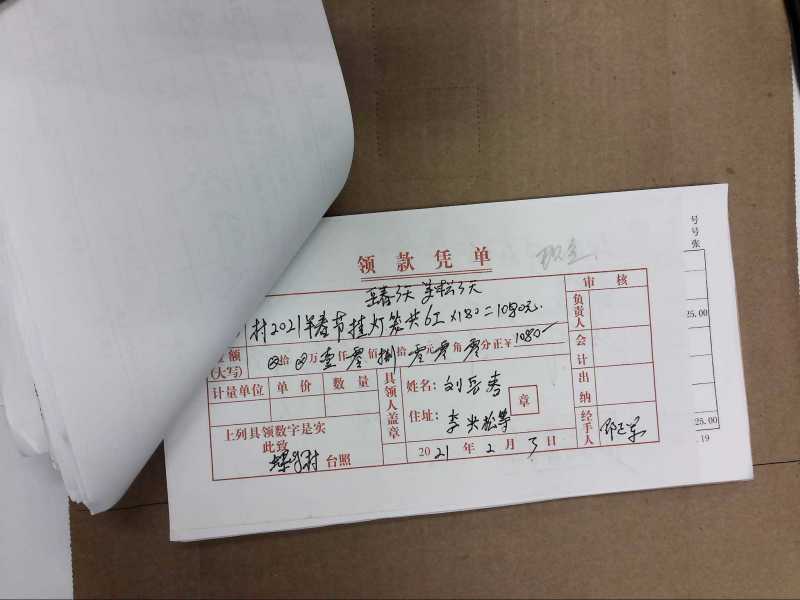 领款凭单
现金
岳春3天 美松3天
村2021年春节挂灯笼共6工×180=1080元.
金额(大写) ⊗拾⊗万壹仟零佰捌拾零元零角零分正¥1080—
计量单位 单价 数量
上列具领数字是实
此致
村 台照
具领人盖章
姓名: 刘岳春
章
住址: 李 松等
2021年2月3日
审核
负责人
会计
出纳
经手人
号
号
张
25.00
25.00
.19